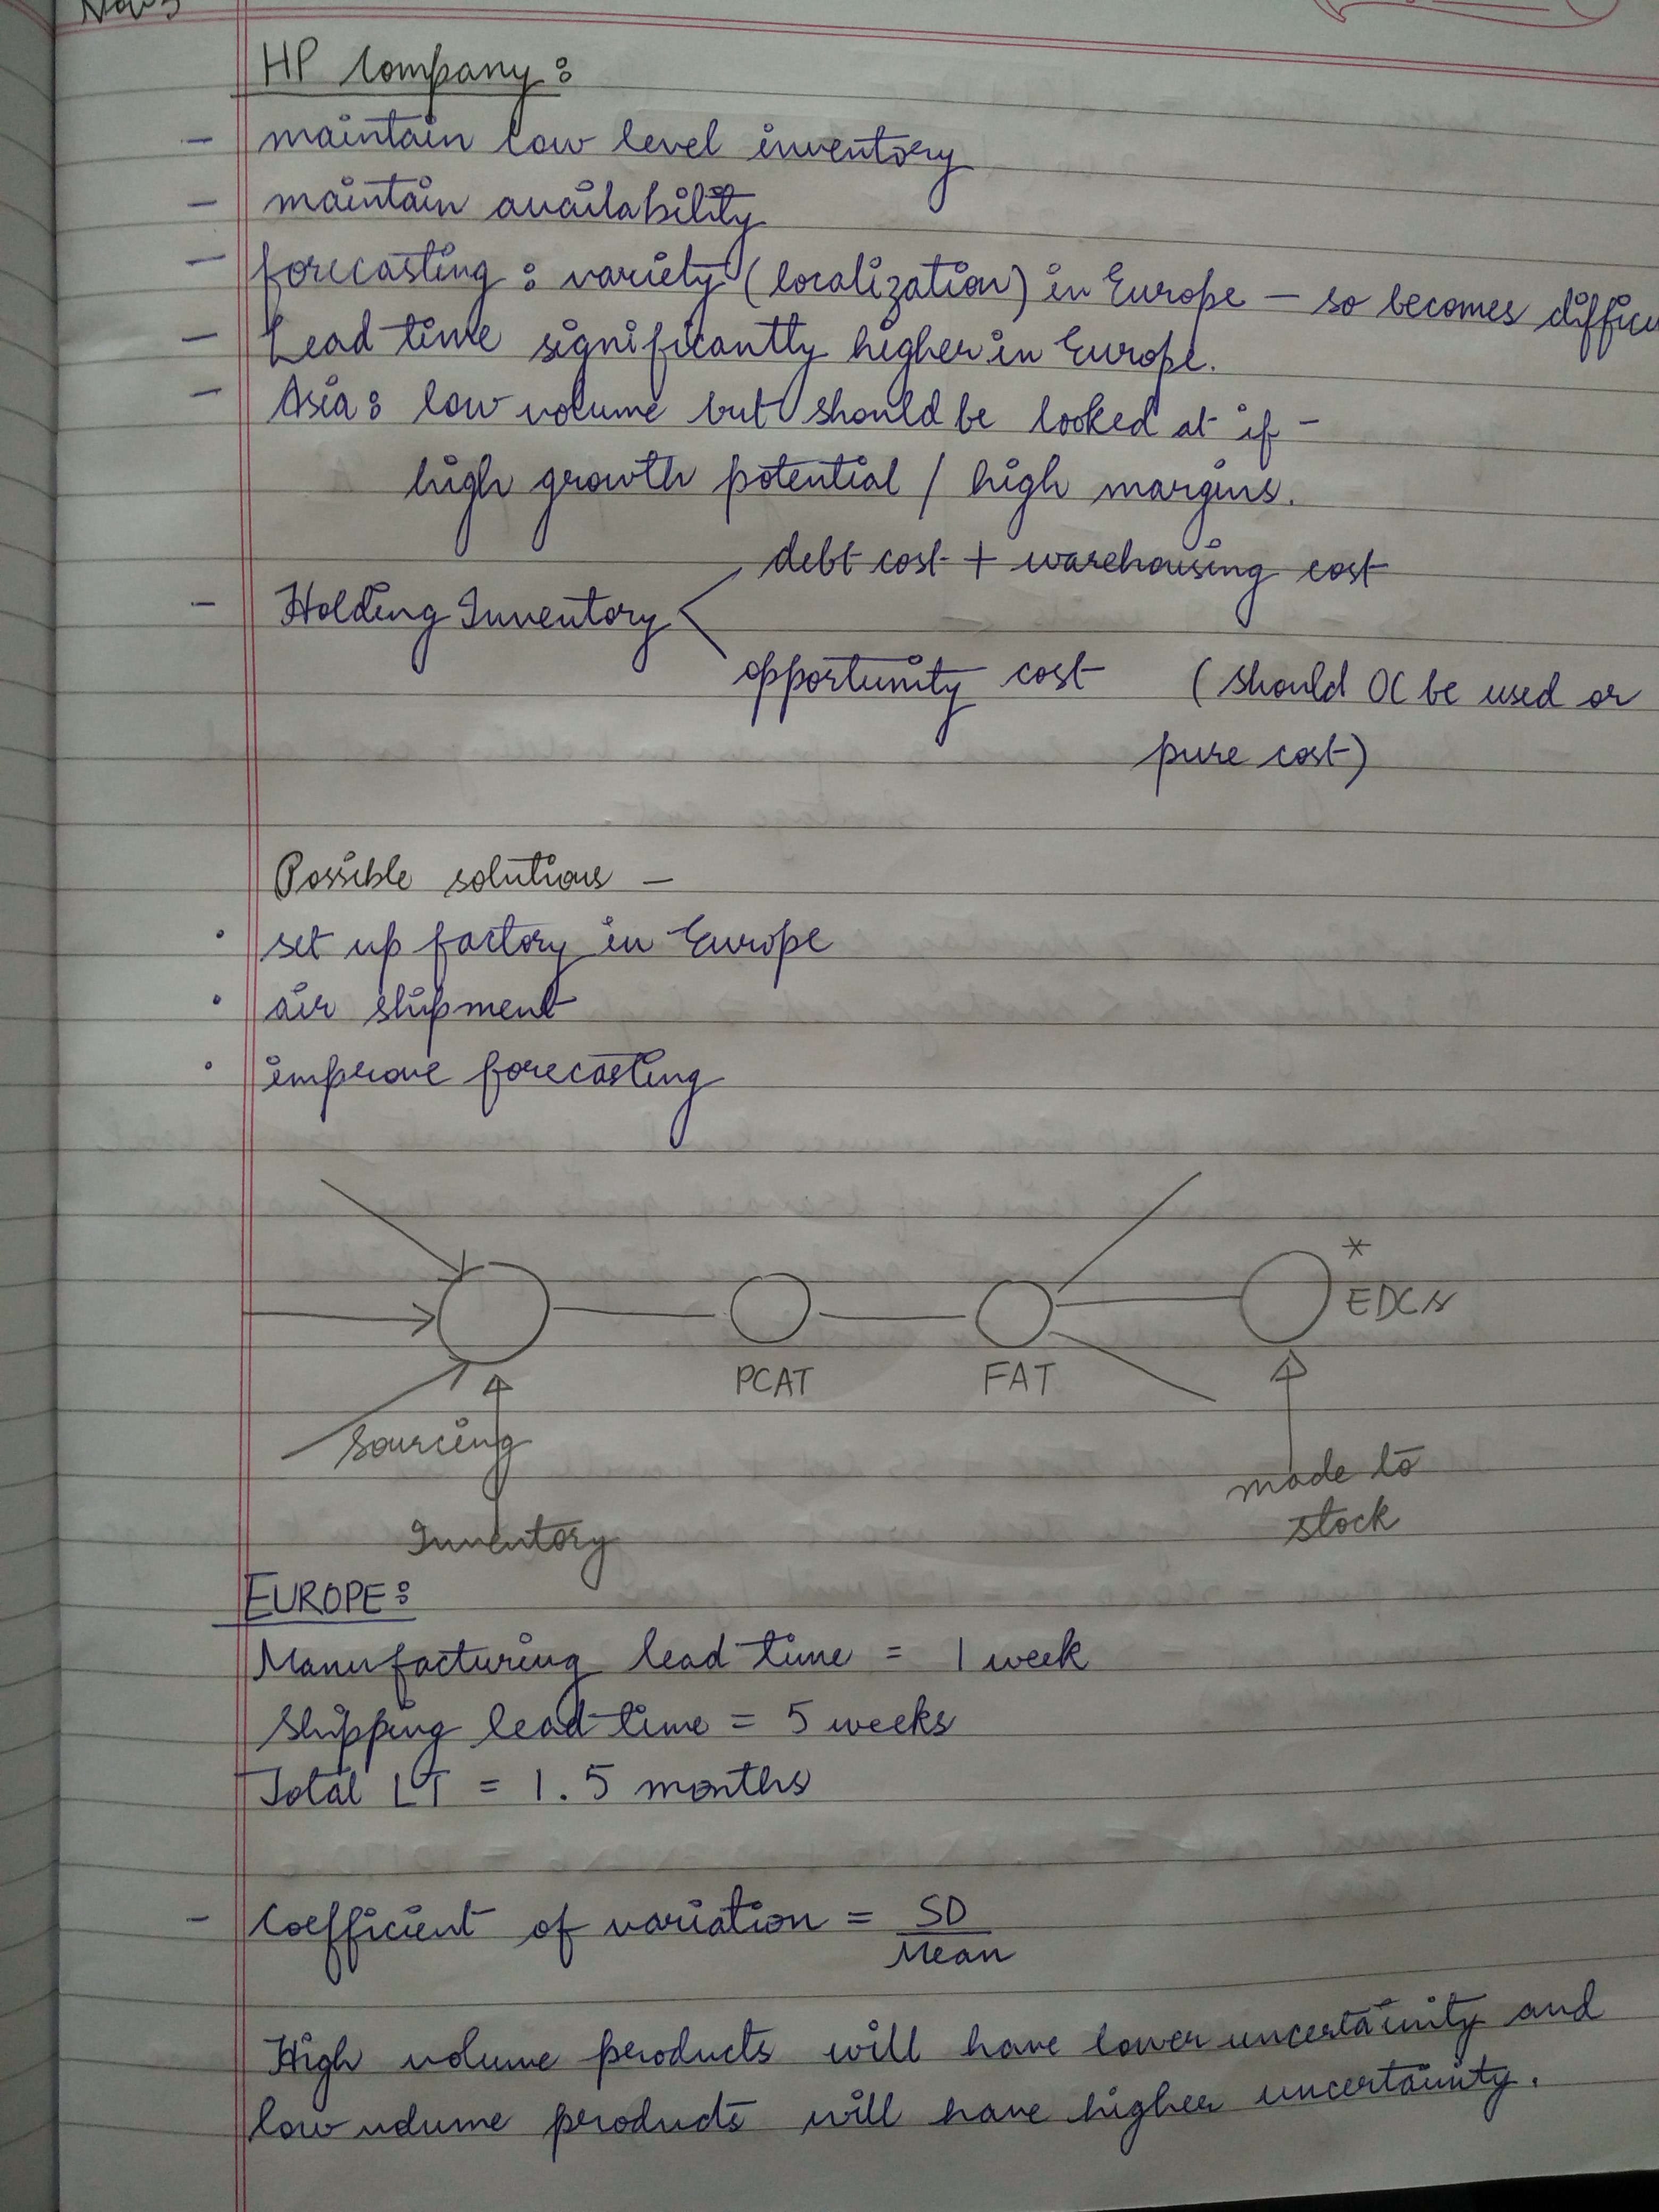 HP Company:
- maintain low level inventory
- maintain availability
- forecasting : variety (localization) in Europe - so becomes
- Lead time significantly higher in Europe.
- Asia: low volume but should be looked at if -
high growth potential / high margins.
debt cost + warehousing cost
- Holding Inventory
opportunity cost (should OC be used or
pure cost)
Possible solutions -
• set up factory in Europe
• air shipment
• improve forecasting
*
EDCs
PCAT FAT
sourcing
made to
stock
Inventory
EUROPE:
Manufacturing lead time = 1 week
Shipping lead time = 5 weeks
Total LT = 1.5 months
- Coefficient of variation = SD
Mean
High volume products will have lower uncertainity and
low volume products will have higher uncertainity.